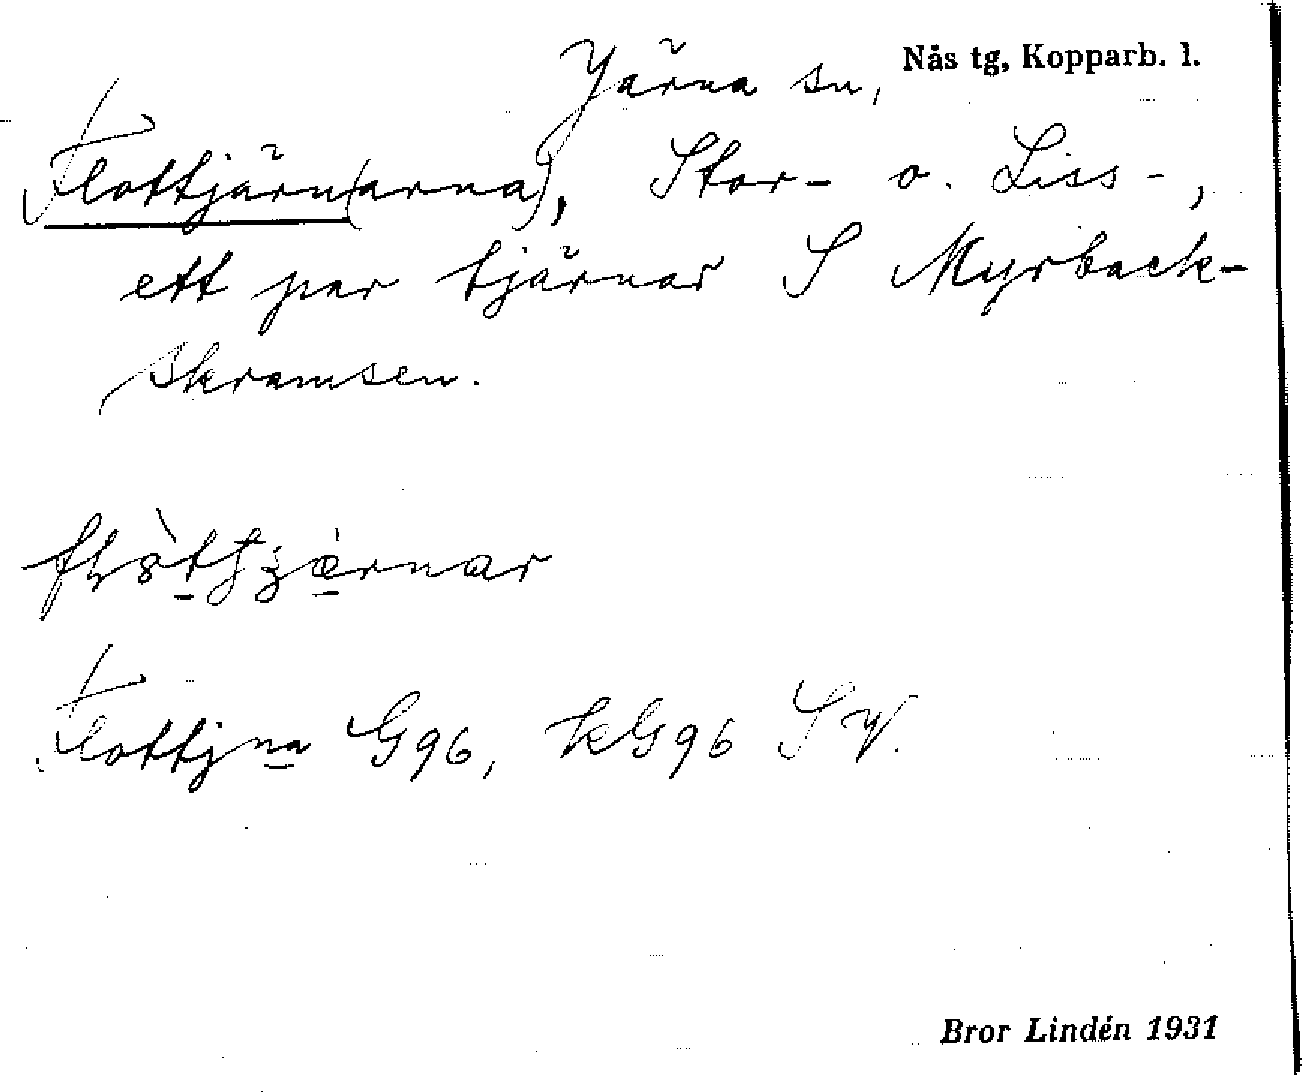 Järna sn, Nås tg, Kopparb. l.
Flottjärn(arna), Stor- o. Liss-,
ett par tjärnar S Myrback-
skramsen.
Flottjna G96, kG96 SV.
Bror Lindén 1931